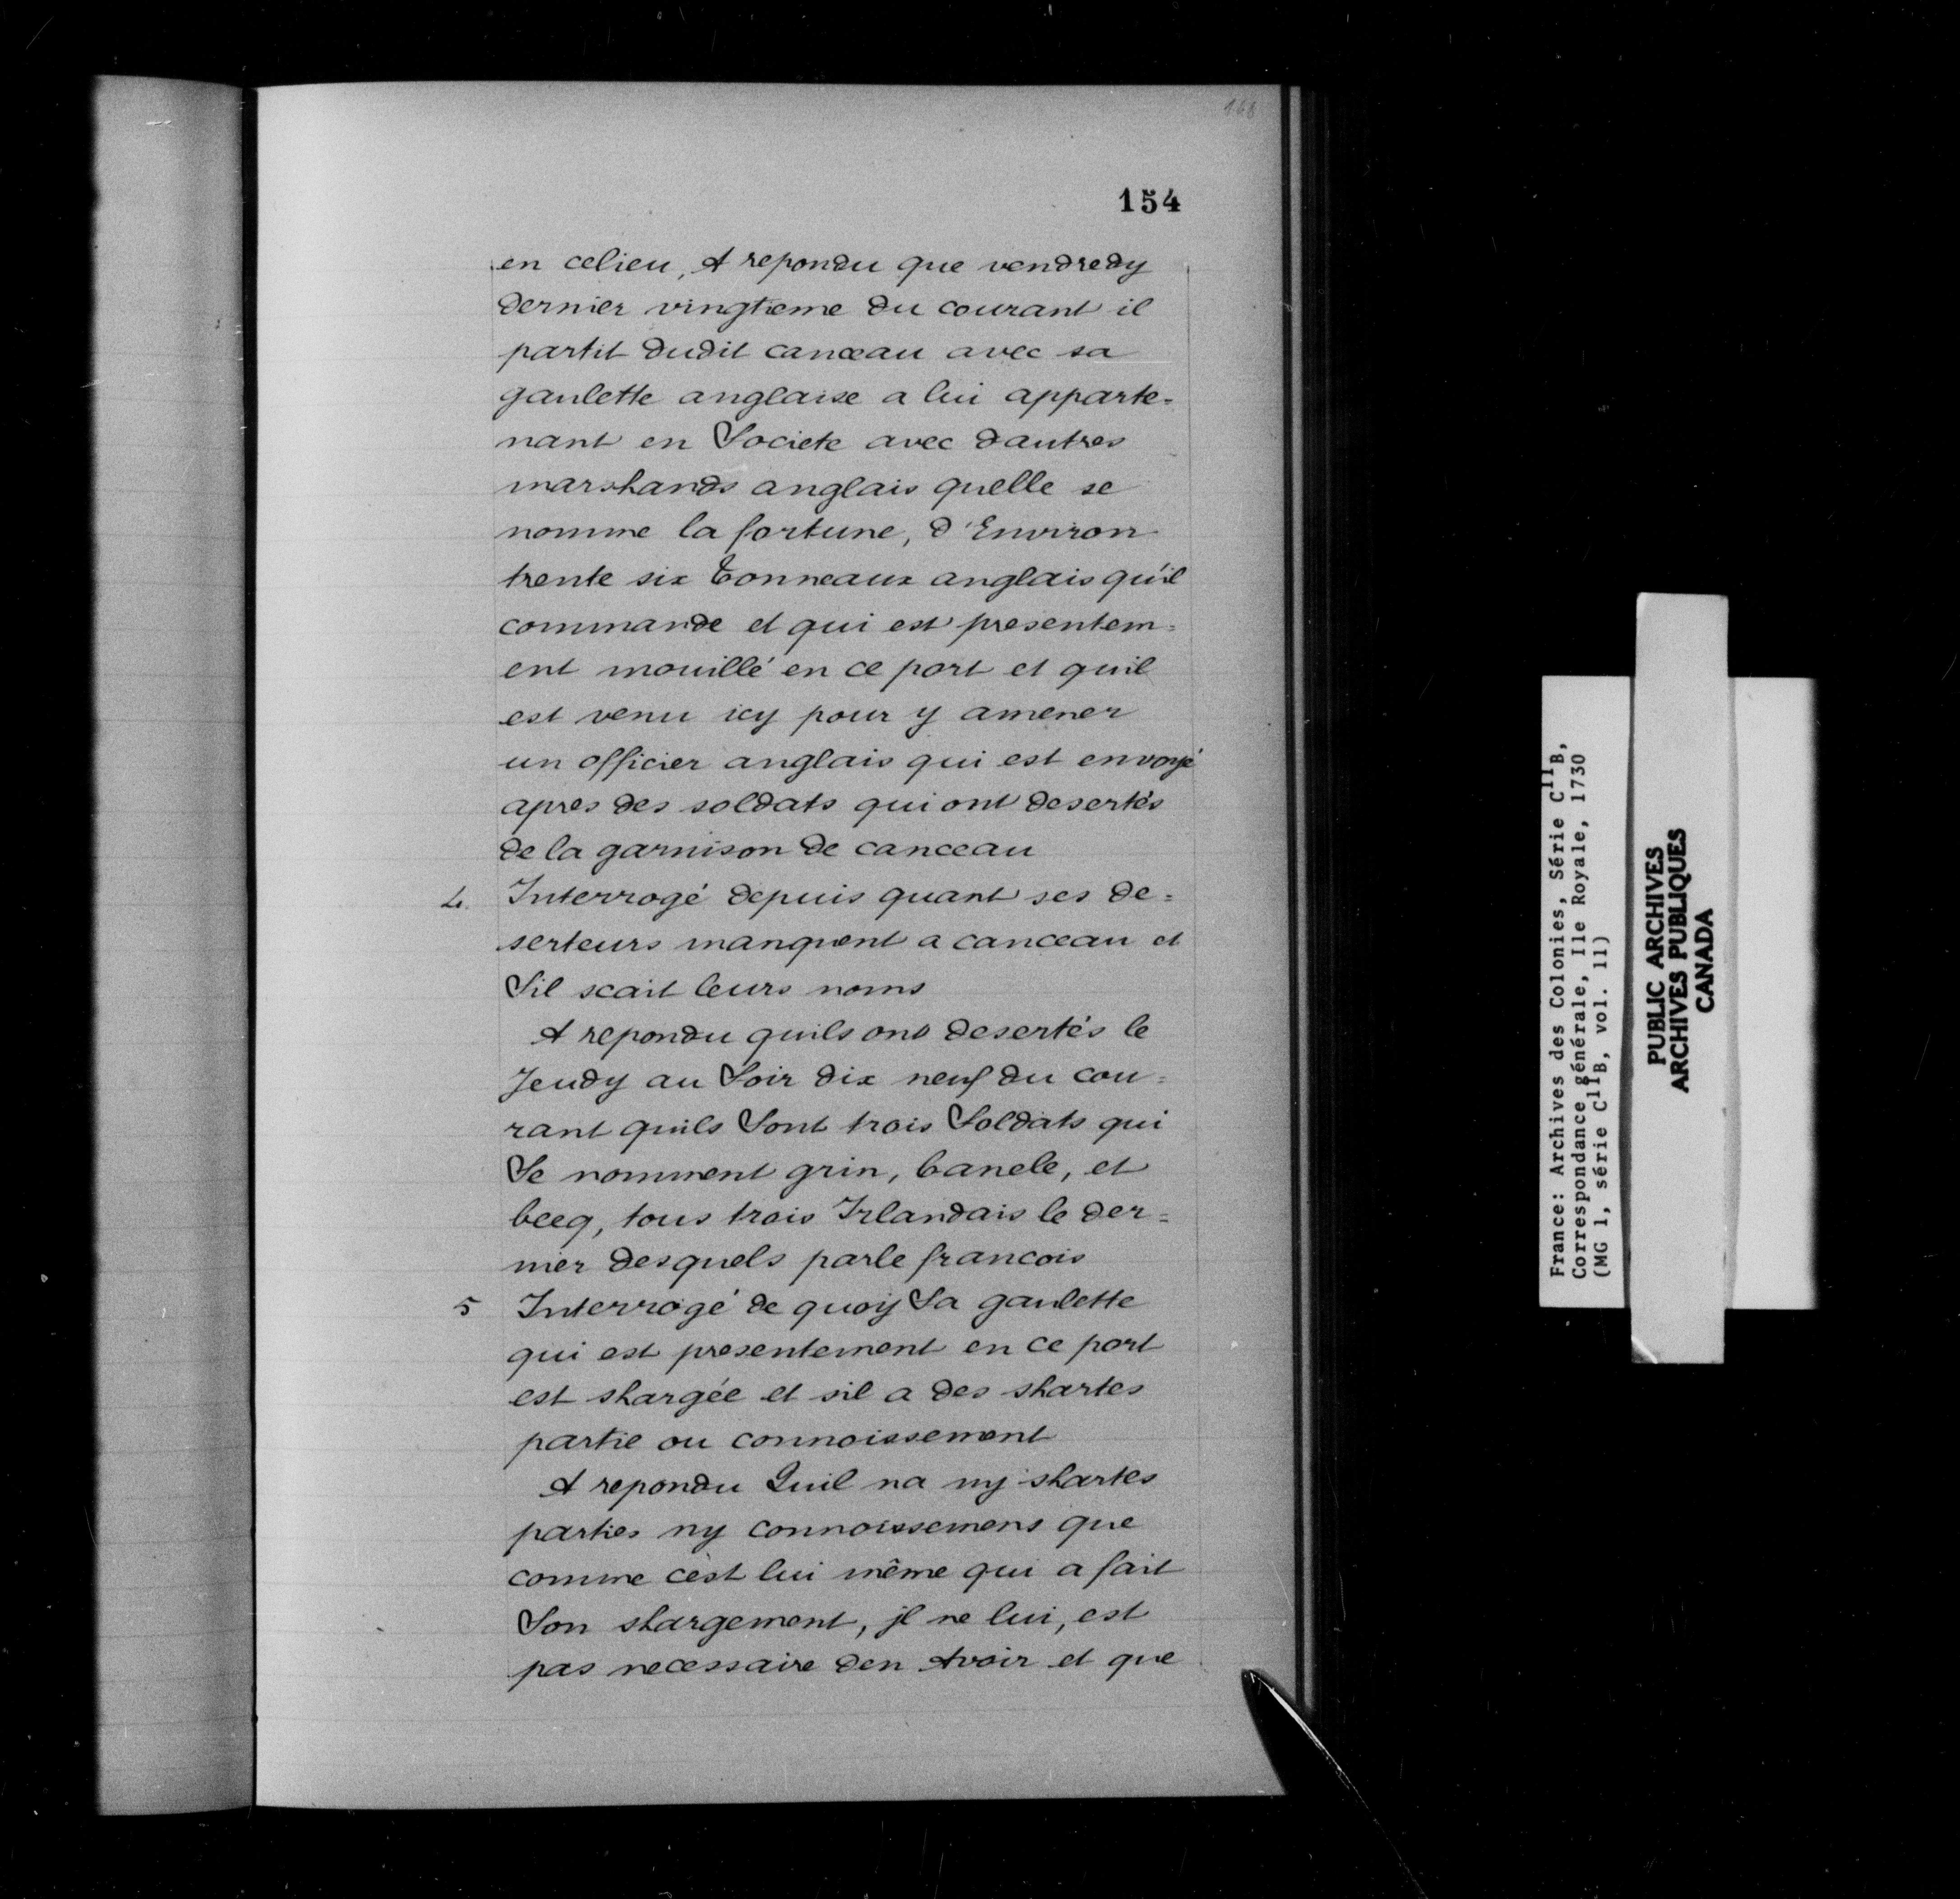 168
154
en celieu, A repondu que vendredy
dernier vingtieme du courant il
partit dudit canceau avec sa
gaulette anglaise a lui apparte=
nant en Societe avec dautres
marshands anglais quelle se
nomme la fortune, d'Environ
trente six Tonneaux anglais qu'il
commande et qui est presentem=
ent mouillé en ce port et quil
est venu icy pour y amener
un officier anglais qui est envoyé
apres des soldats qui ont desertés
de la garnison de canceau
4. Interrogé depuis quant ses de=
serteurs manquent a canceau et
Sil scait leurs noms
A repondu quils ont desertés le
Jeudy au Soir dix neuf du cou=
rant quils Sont trois Soldats qui
Se nomment grin, banele, et
becq, tous trois Irlandais le der=
nier desquels parle francois
5 Interrogé de quoy Sa gaulette
qui est presentement en ce port
est shargée et sil a des shartes
partie ou connoissement
A repondu Quil na ny shartes
parties ny connoissemens que
comme cèst lui même qui a fait
Son shargement, jl ne lui, est
pas necessaire den Avoir et que
France: Archives des Colonies, Série C11B,
Correspondance générale, Ile Royale, 1730
(MG 1, série C11B, vol. 11)
PUBLIC ARCHIVES
ARCHIVES PUBLIQUES
CANADA